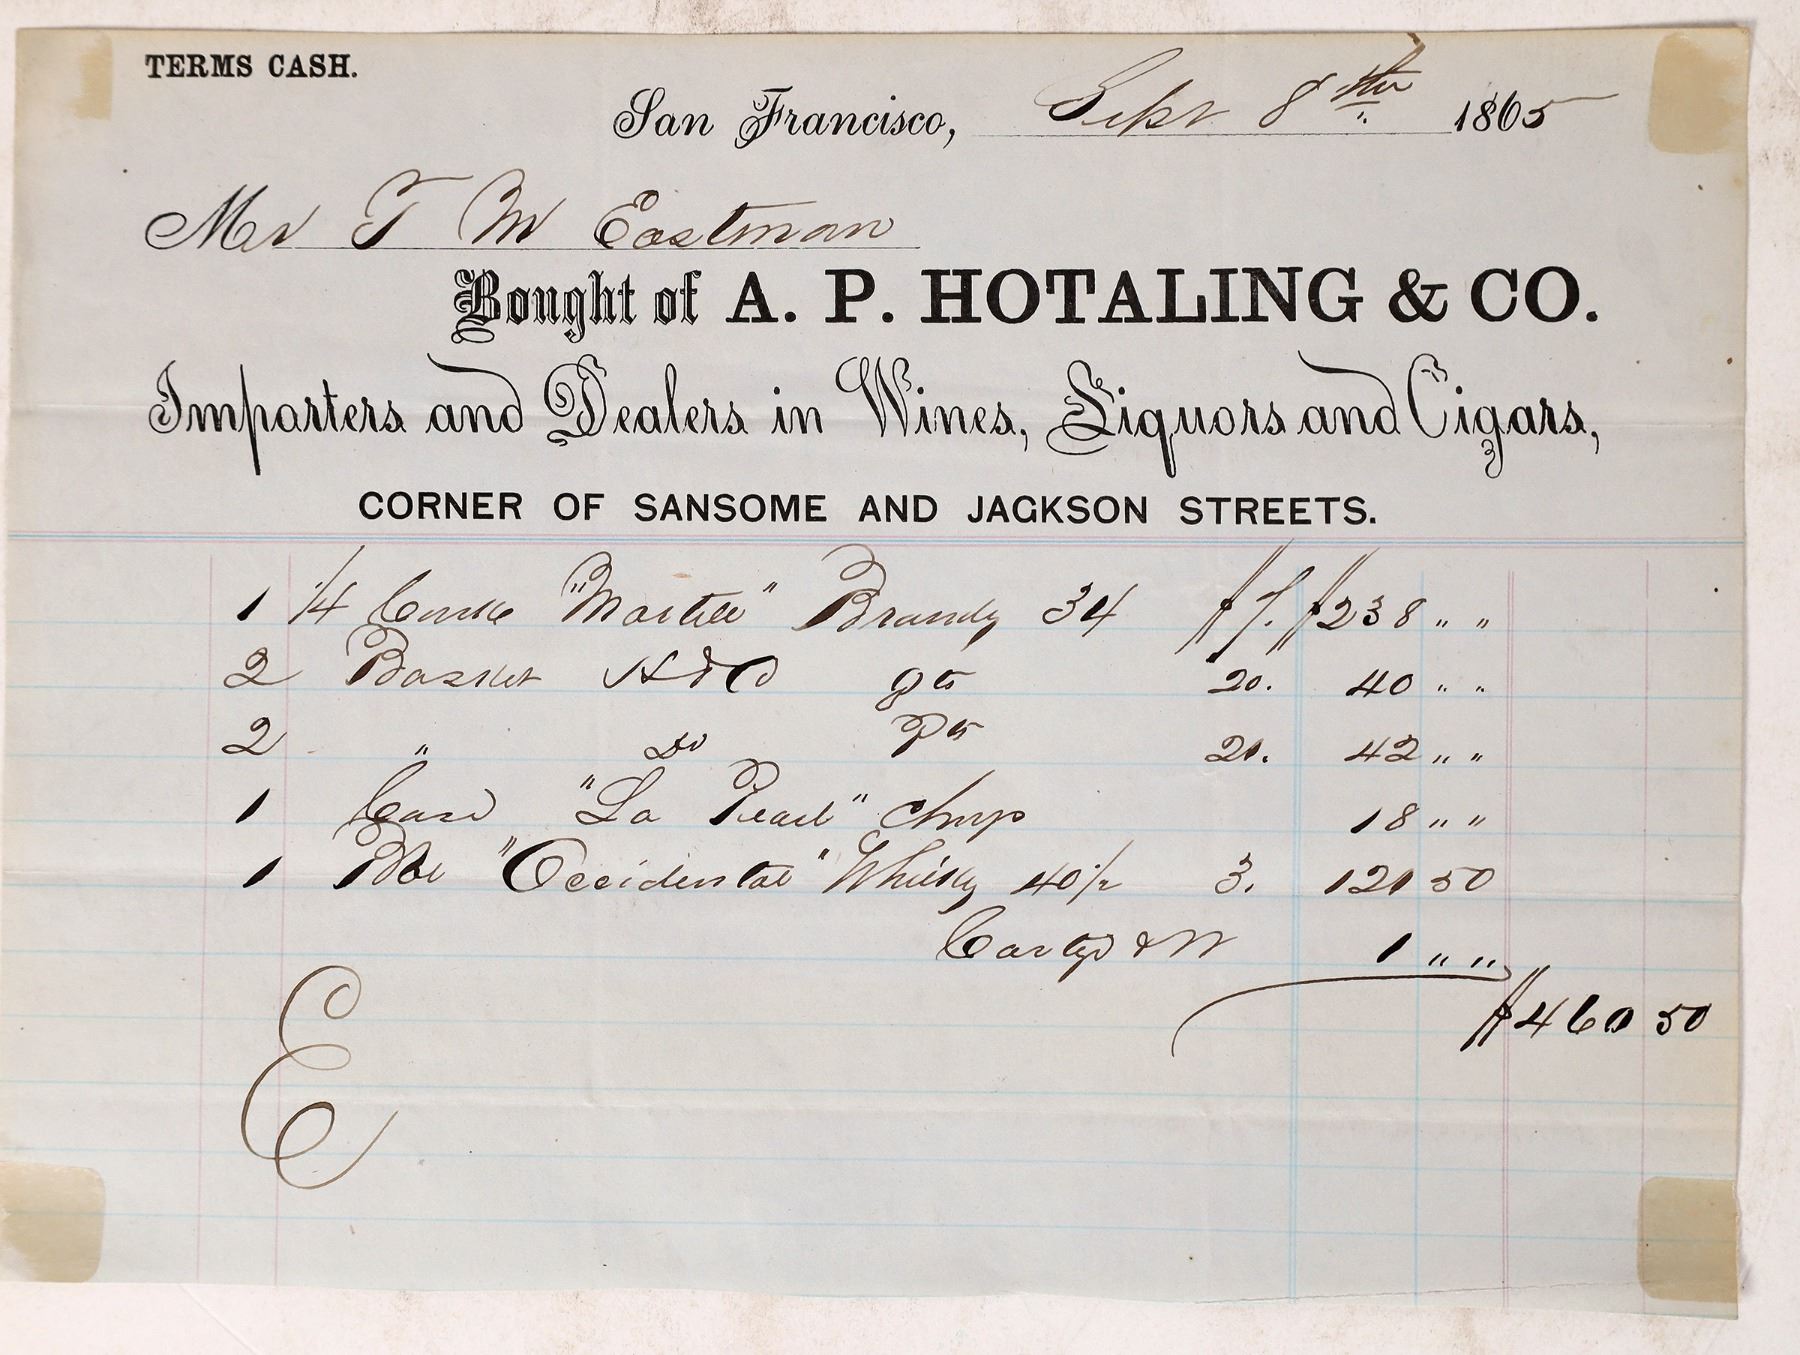 TERMS CASH.
San Francisco, Sept 8th 1865
Mr T M Eastman
Bought of A. P. HOTALING & CO.
Importers and Dealers in Wines, Liquors and Cigars,
CORNER OF SANSOME AND JACKSON STREETS.
1 1/4 Caske "Martell" Brandy 34 $7. $238 " "
2 Basket H & C qts 20. 40 " "
2 " Do Pts 21. 42 " "
1 Case "La Pearl" Chmp 18 " "
1 Bbl "Occidental" Whisky 40 1/2 3. 121 50
Cartg & W 1 " "
$460 50
E